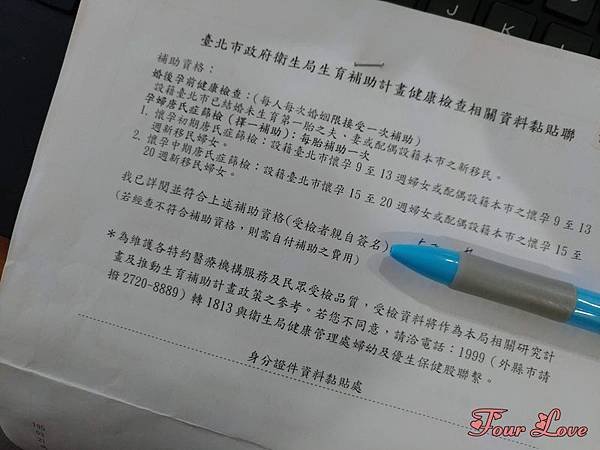 臺北市政府衛生局生育補助計畫健康檢查相關資料黏貼聯
補助資格：
婚後孕前健康檢查：(每人每次婚姻限接受一次補助)
設籍臺北市已結婚未生育第一胎之夫、妻或配偶設籍本市之新移民。
孕婦唐氏症篩檢 (擇一補助)：每胎補助一次
1. 懷孕初期唐氏症篩檢：設籍臺北市懷孕 9 至 13 週婦女或配偶設籍本市之懷孕 9 至 13
週新移民婦女。
2. 懷孕中期唐氏症篩檢：設籍臺北市懷孕 15 至 20 週婦女或配偶設籍本市之懷孕 15 至
20 週新移民婦女。
我已詳閱並符合上述補助資格(受檢者親自簽名)
(若經查不符合補助資格，則需自付補助之費用)
*為維護各特約醫療機構服務及民眾受檢品質，受檢資料將作為本局相關研究計
畫及推動生育補助計畫政策之參考。若您不同意，請洽電話：1999 (外縣市請
撥 2720-8889) 轉 1813 與衛生局健康管理處婦幼及優生保健股聯繫。
身分證件資料黏貼處
Four Love